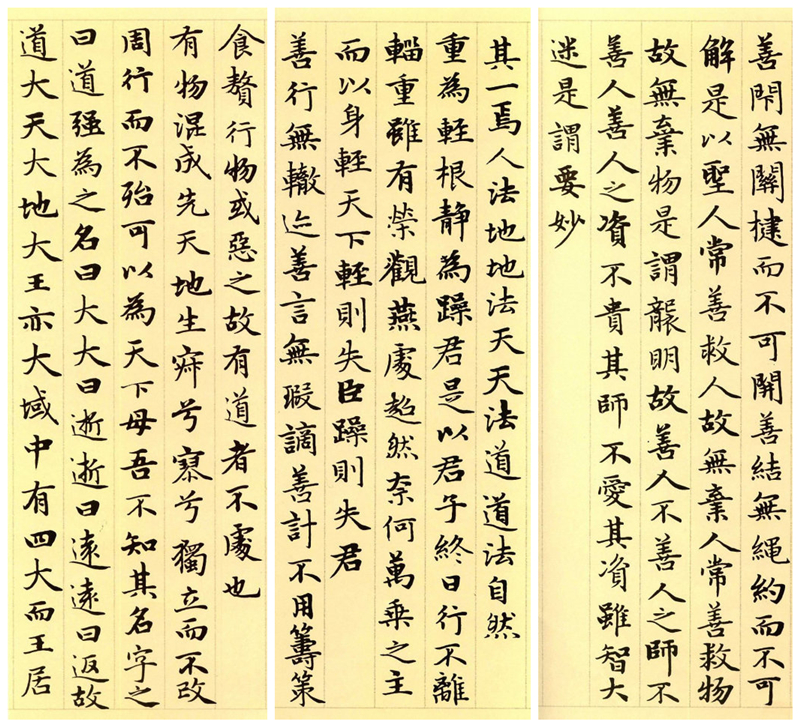 食贅行物或惡之故有道者不處也
有物混成先天地生寂兮寥兮獨立而不改
周行而不殆可以為天下母吾不知其名字之
曰道强為之名曰大大曰逝逝曰遠遠曰返故
道大天大地大王亦大域中有四大而王居
其一焉人法地地法天天法道道法自然
重為輕根静為躁君是以君子終日行不離
輜重雖有榮觀燕處超然奈何萬乘之主
而以身輕天下輕則失臣躁則失君
善行無轍迹善言無瑕謫善計不用籌策
善閉無關楗而不可開善結無繩約而不可
解是以聖人常善救人故無棄人常善救物
故無棄物是謂襲明故善人不善人之師不
善人善人之資不貴其師不愛其資雖智大
迷是謂要妙